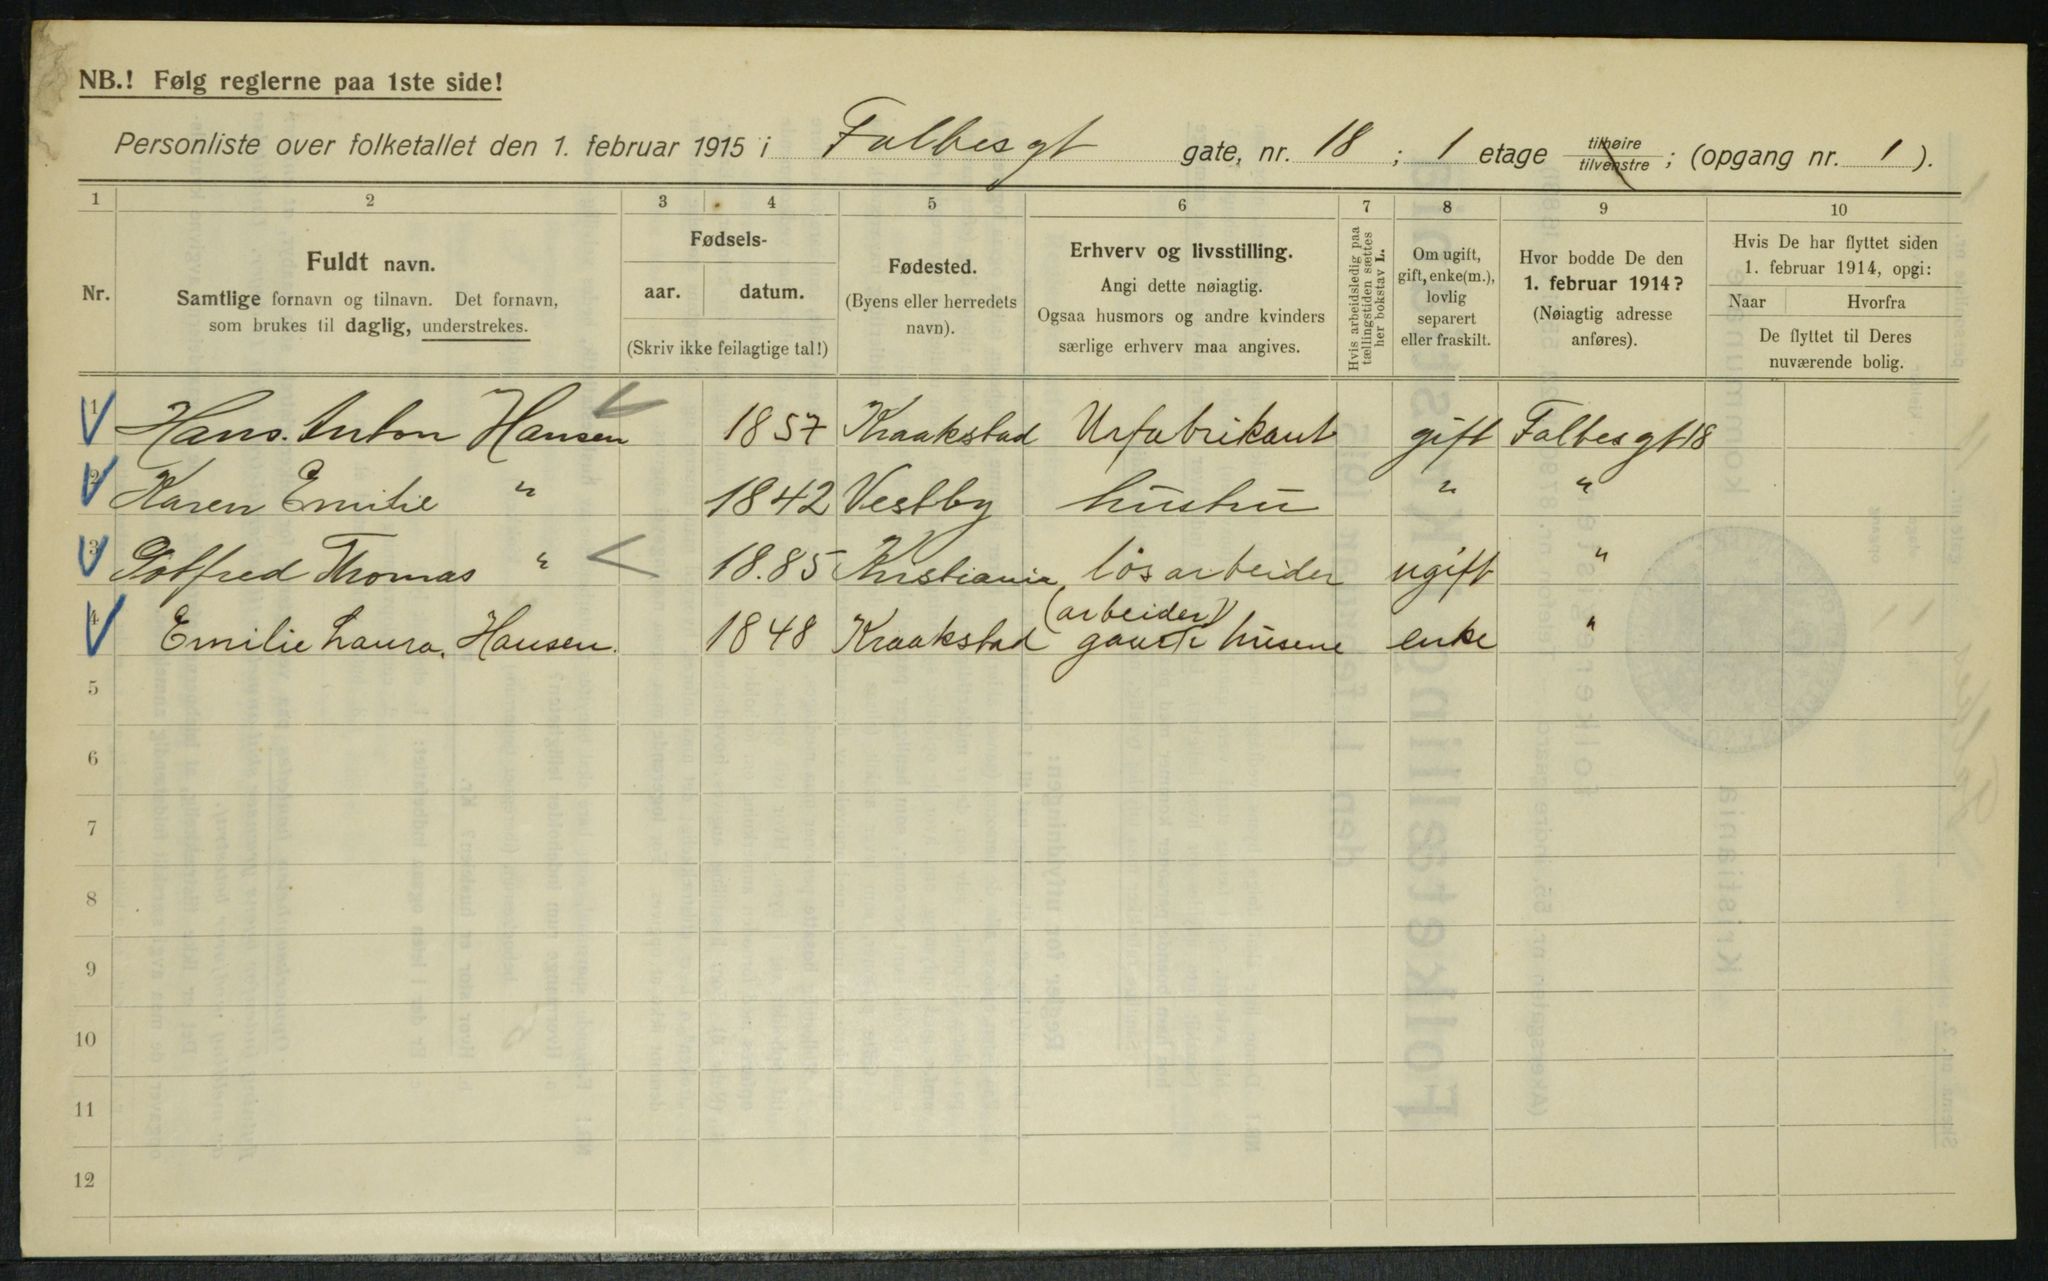 NB.! Følg reglerne paa 1ste side!
Personliste over folketallet den 1. februar 1915 i Falbesgt gate, nr. 18 ; 1 etage tilhøire/tilvenstre ; (opgang nr. 1 ).
1 2 3 4 5 6 7 8 9 10
Nr.
Fuldt navn.
Samtlige fornavn og tilnavn. Det fornavn,
som brukes til daglig, understrekes.
Fødsels-
aar. datum.
(Skriv ikke feilagtige tal!)
Fødested.
(Byens eller herredets
navn).
Erhverv og livsstilling.
Angi dette nøiagtig.
Ogsaa husmors og andre kvinders
særlige erhverv maa angives.
Hvis arbeidsledig paa
tællingstiden sættes
her bokstav L.
Om ugift,
gift, enke(m.),
lovlig
separert
eller fraskilt.
Hvor bodde De den
1. februar 1914?
(Nøiagtig adresse
anføres).
Hvis De har flyttet siden
1. februar 1914, opgi:
Naar Hvorfra
De flyttet til Deres
nuværende bolig.
1 Hans. Anton Hansen 1857 Kraakstad Urfabrikant gift Falbesgt 18
2 Karen Emilie " 1842 Vestby hustru " "
3 Gotfred Thomas " 18.85 Kristiania løsarbeider ugift "
(arbeider)
4 Emilie Laura. Hansen. 1848 Kraakstad husene enke "
5
6
7
8
9
10
11
12